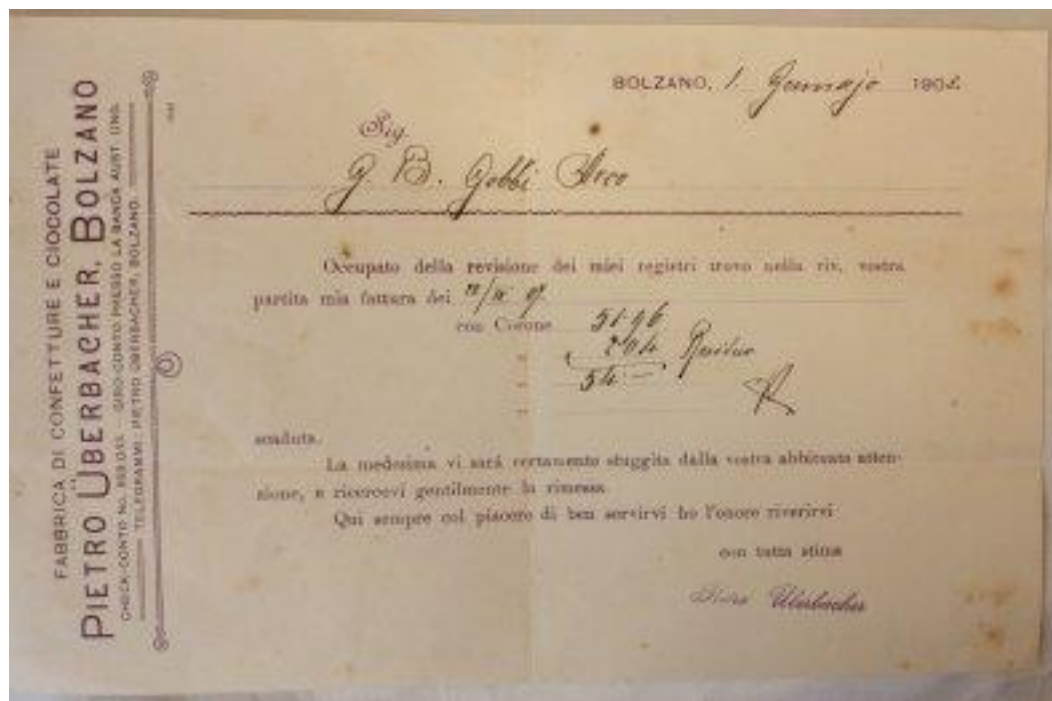 FABBRICA DI CONFETTURE E CIOCOLATE
PIETRO ÜBERBACHER, BOLZANO
CHECK-CONTO No. GIRO-CONTO PRESSO LA BANCA AUST. UNG.
TELEGRAMMI: PIETRO ÜBERBACHER, BOLZANO.
BOLZANO, 1. Gennajo 190
Sig.
G. B. Gobbi Arco
Occupato della revisione dei miei registri trovo nella riv. vostra
partita mia fattura dei
con Corone 51 96
2 04
54 -
scaduta.
La medesima vi sará certamente sfuggita dalla vostra abbituata atten-
zione, e ricorcovi gentilmente la rimessa.
Qui sempre col piacere di ben servirvi ho l'onore riverirvi
con tutta stima
Pietro Überbacher